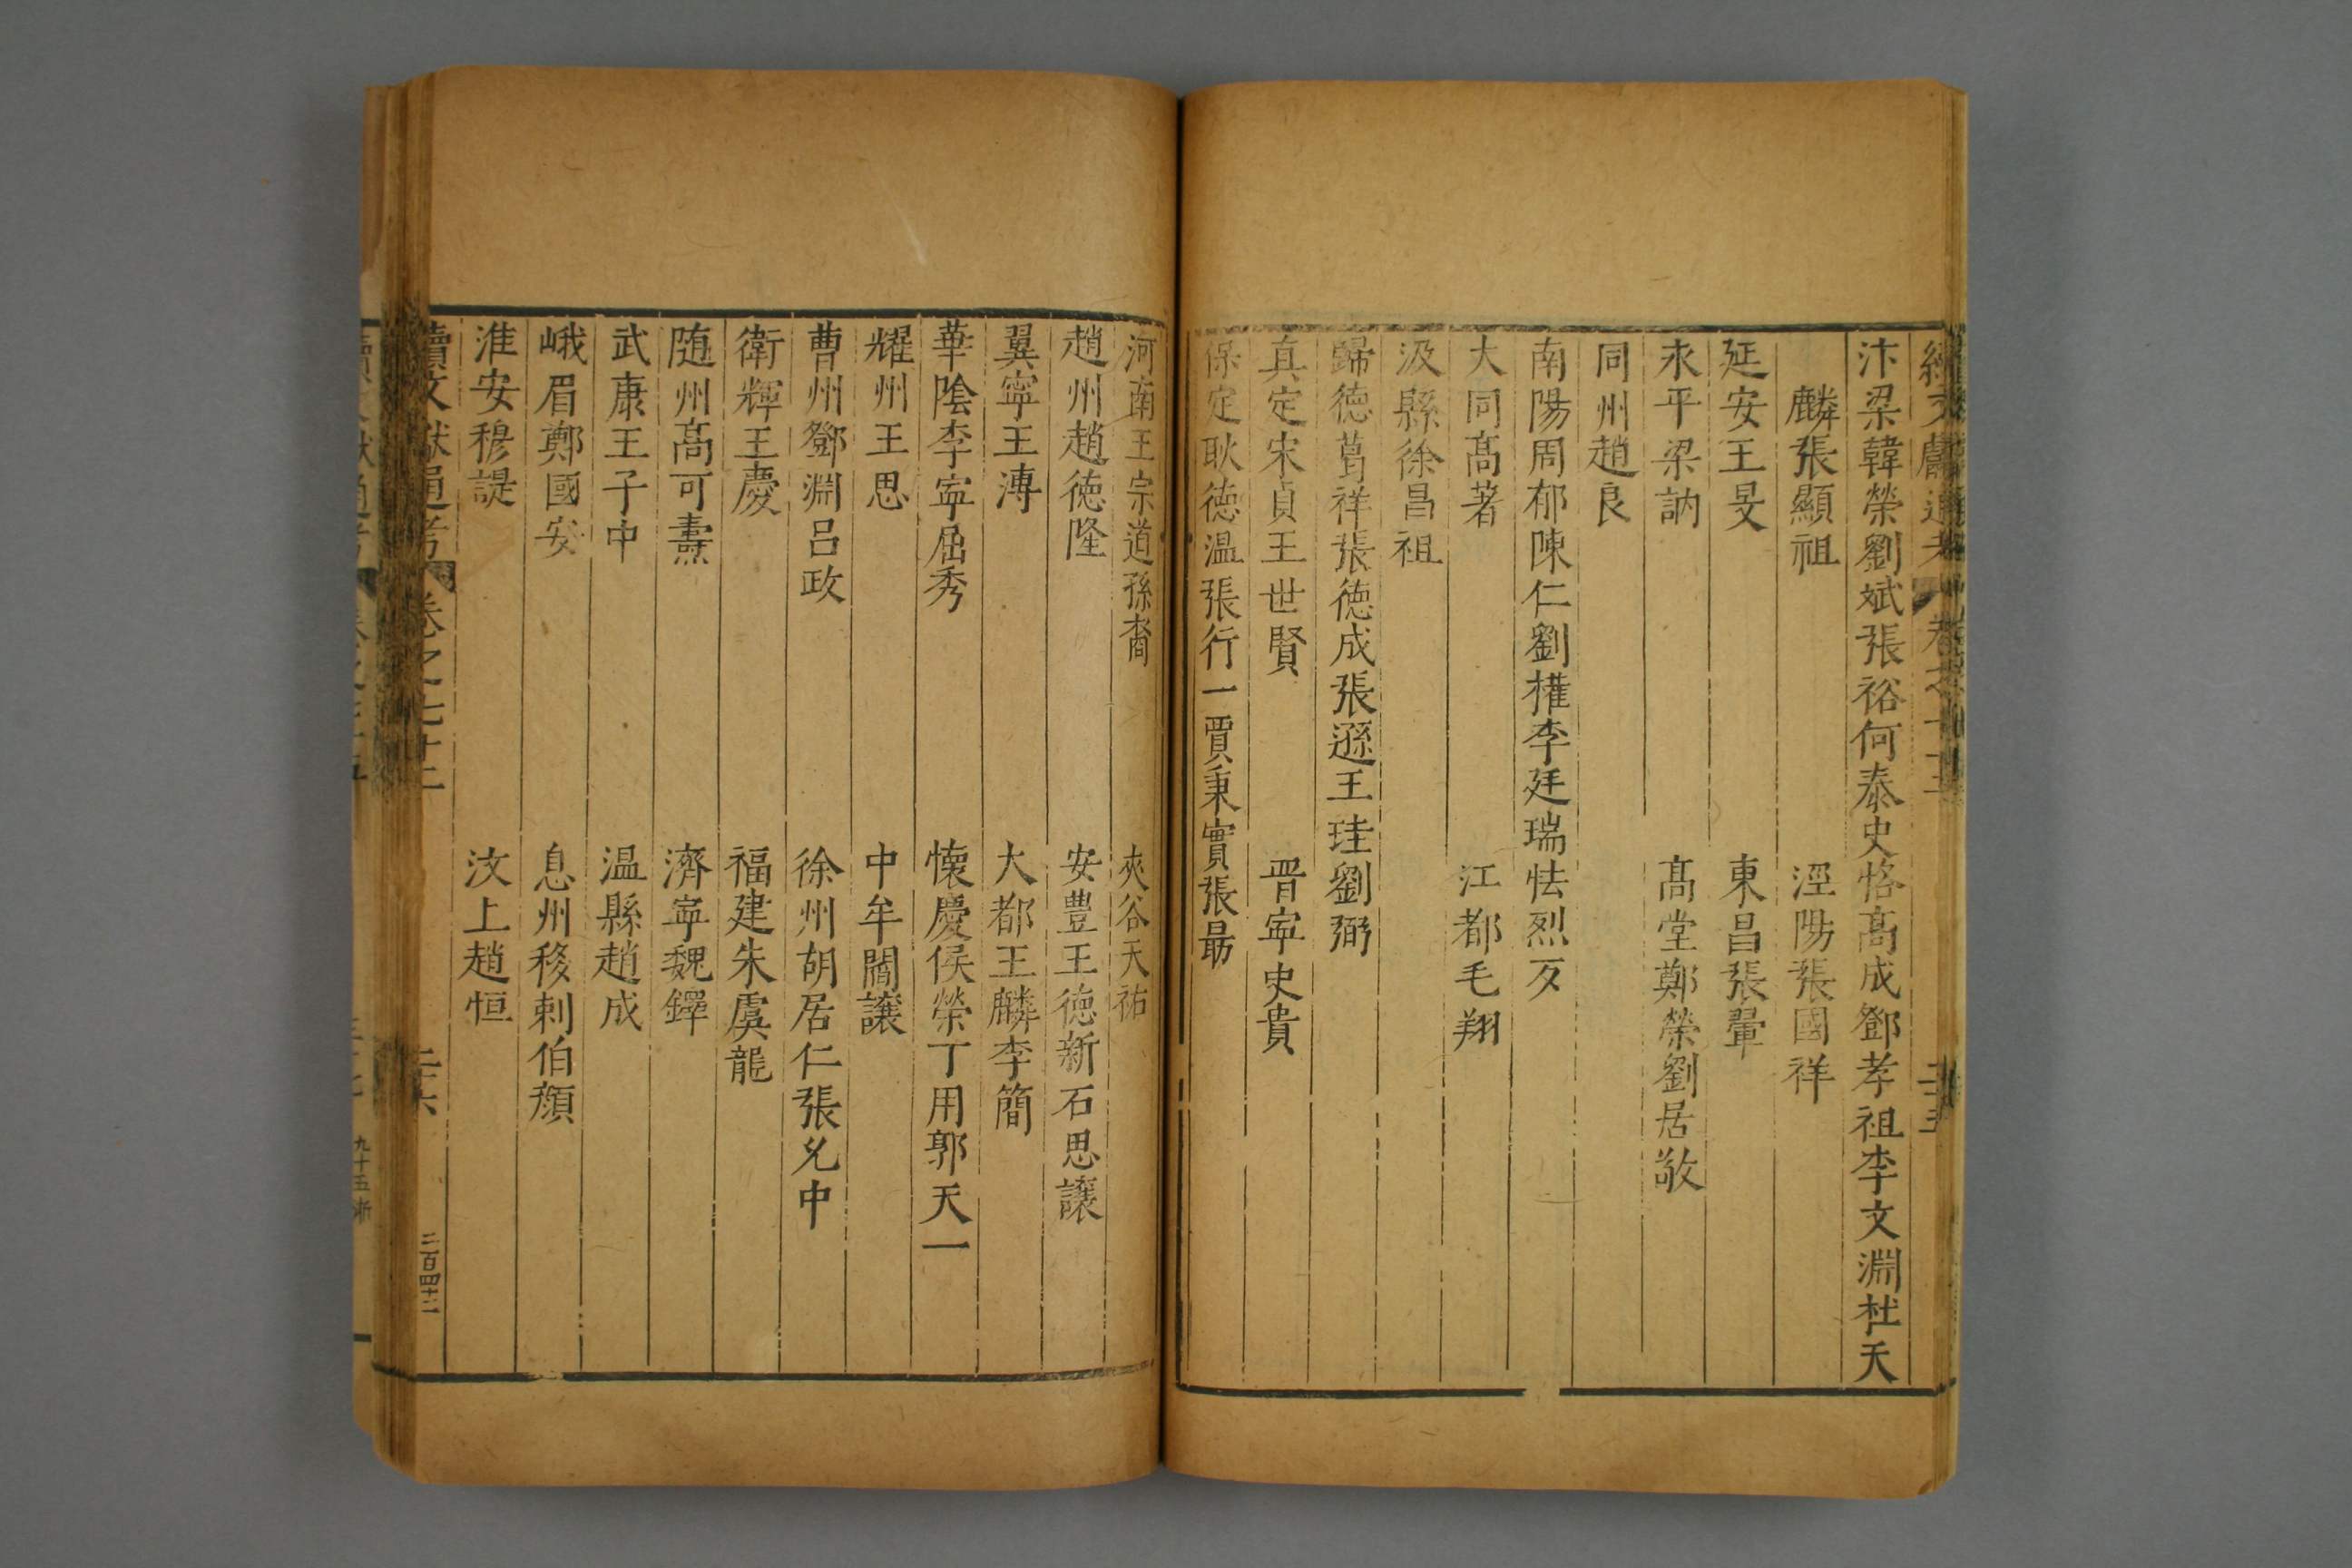 汴梁韓榮劉斌張裕何泰史恪髙成鄧孝祖李文淵杜天
麟張顯祖 涇陽張國祥
延安王旻 東昌張鞏
永平梁訥 髙堂鄭榮劉居敬
同州趙良
南陽周郁陳仁劉權李廷瑞怯烈歹
大同髙著 江都毛翔
汲縣徐昌祖
歸徳葛祥張徳成張遜王珪劉弼
真定宋貞王世賢 晋寧史貴
保定耿徳温張行一賈秉實張最
河南王宗道孫裔 夾谷天祐
趙州趙徳隆 安豊王徳新石思讓
冀寧王溥 大都王麟李簡
華陰李寧屈秀 懐慶侯榮丁用郭天一
耀州王思 中牟閻讓
曹州鄧淵吕政 徐州胡居仁張允中
衛輝王慶 福建朱虞龍
随州髙可燾 濟寧魏鐸
武康王子中 温縣趙成
峨眉鄭國安 息州移剌伯顔
淮安穆諟 汶上趙恒
續文獻通考 卷之七十二 二十六 二百四十二